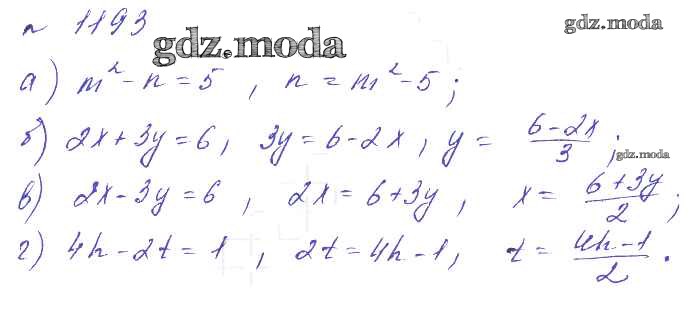 № 1193
gdz.moda
gdz.moda
а) m² - n = 5 , n = m² - 5 ;
б) 2x + 3y = 6 , 3y = 6 - 2x , y = (6 - 2x)/3 ;
gdz.moda
в) 2x - 3y = 6 , 2x = 6 + 3y , x = (6 + 3y)/2 ;
г) 4h - 2t = 1 , 2t = 4h - 1 , t = (4h - 1)/2 .